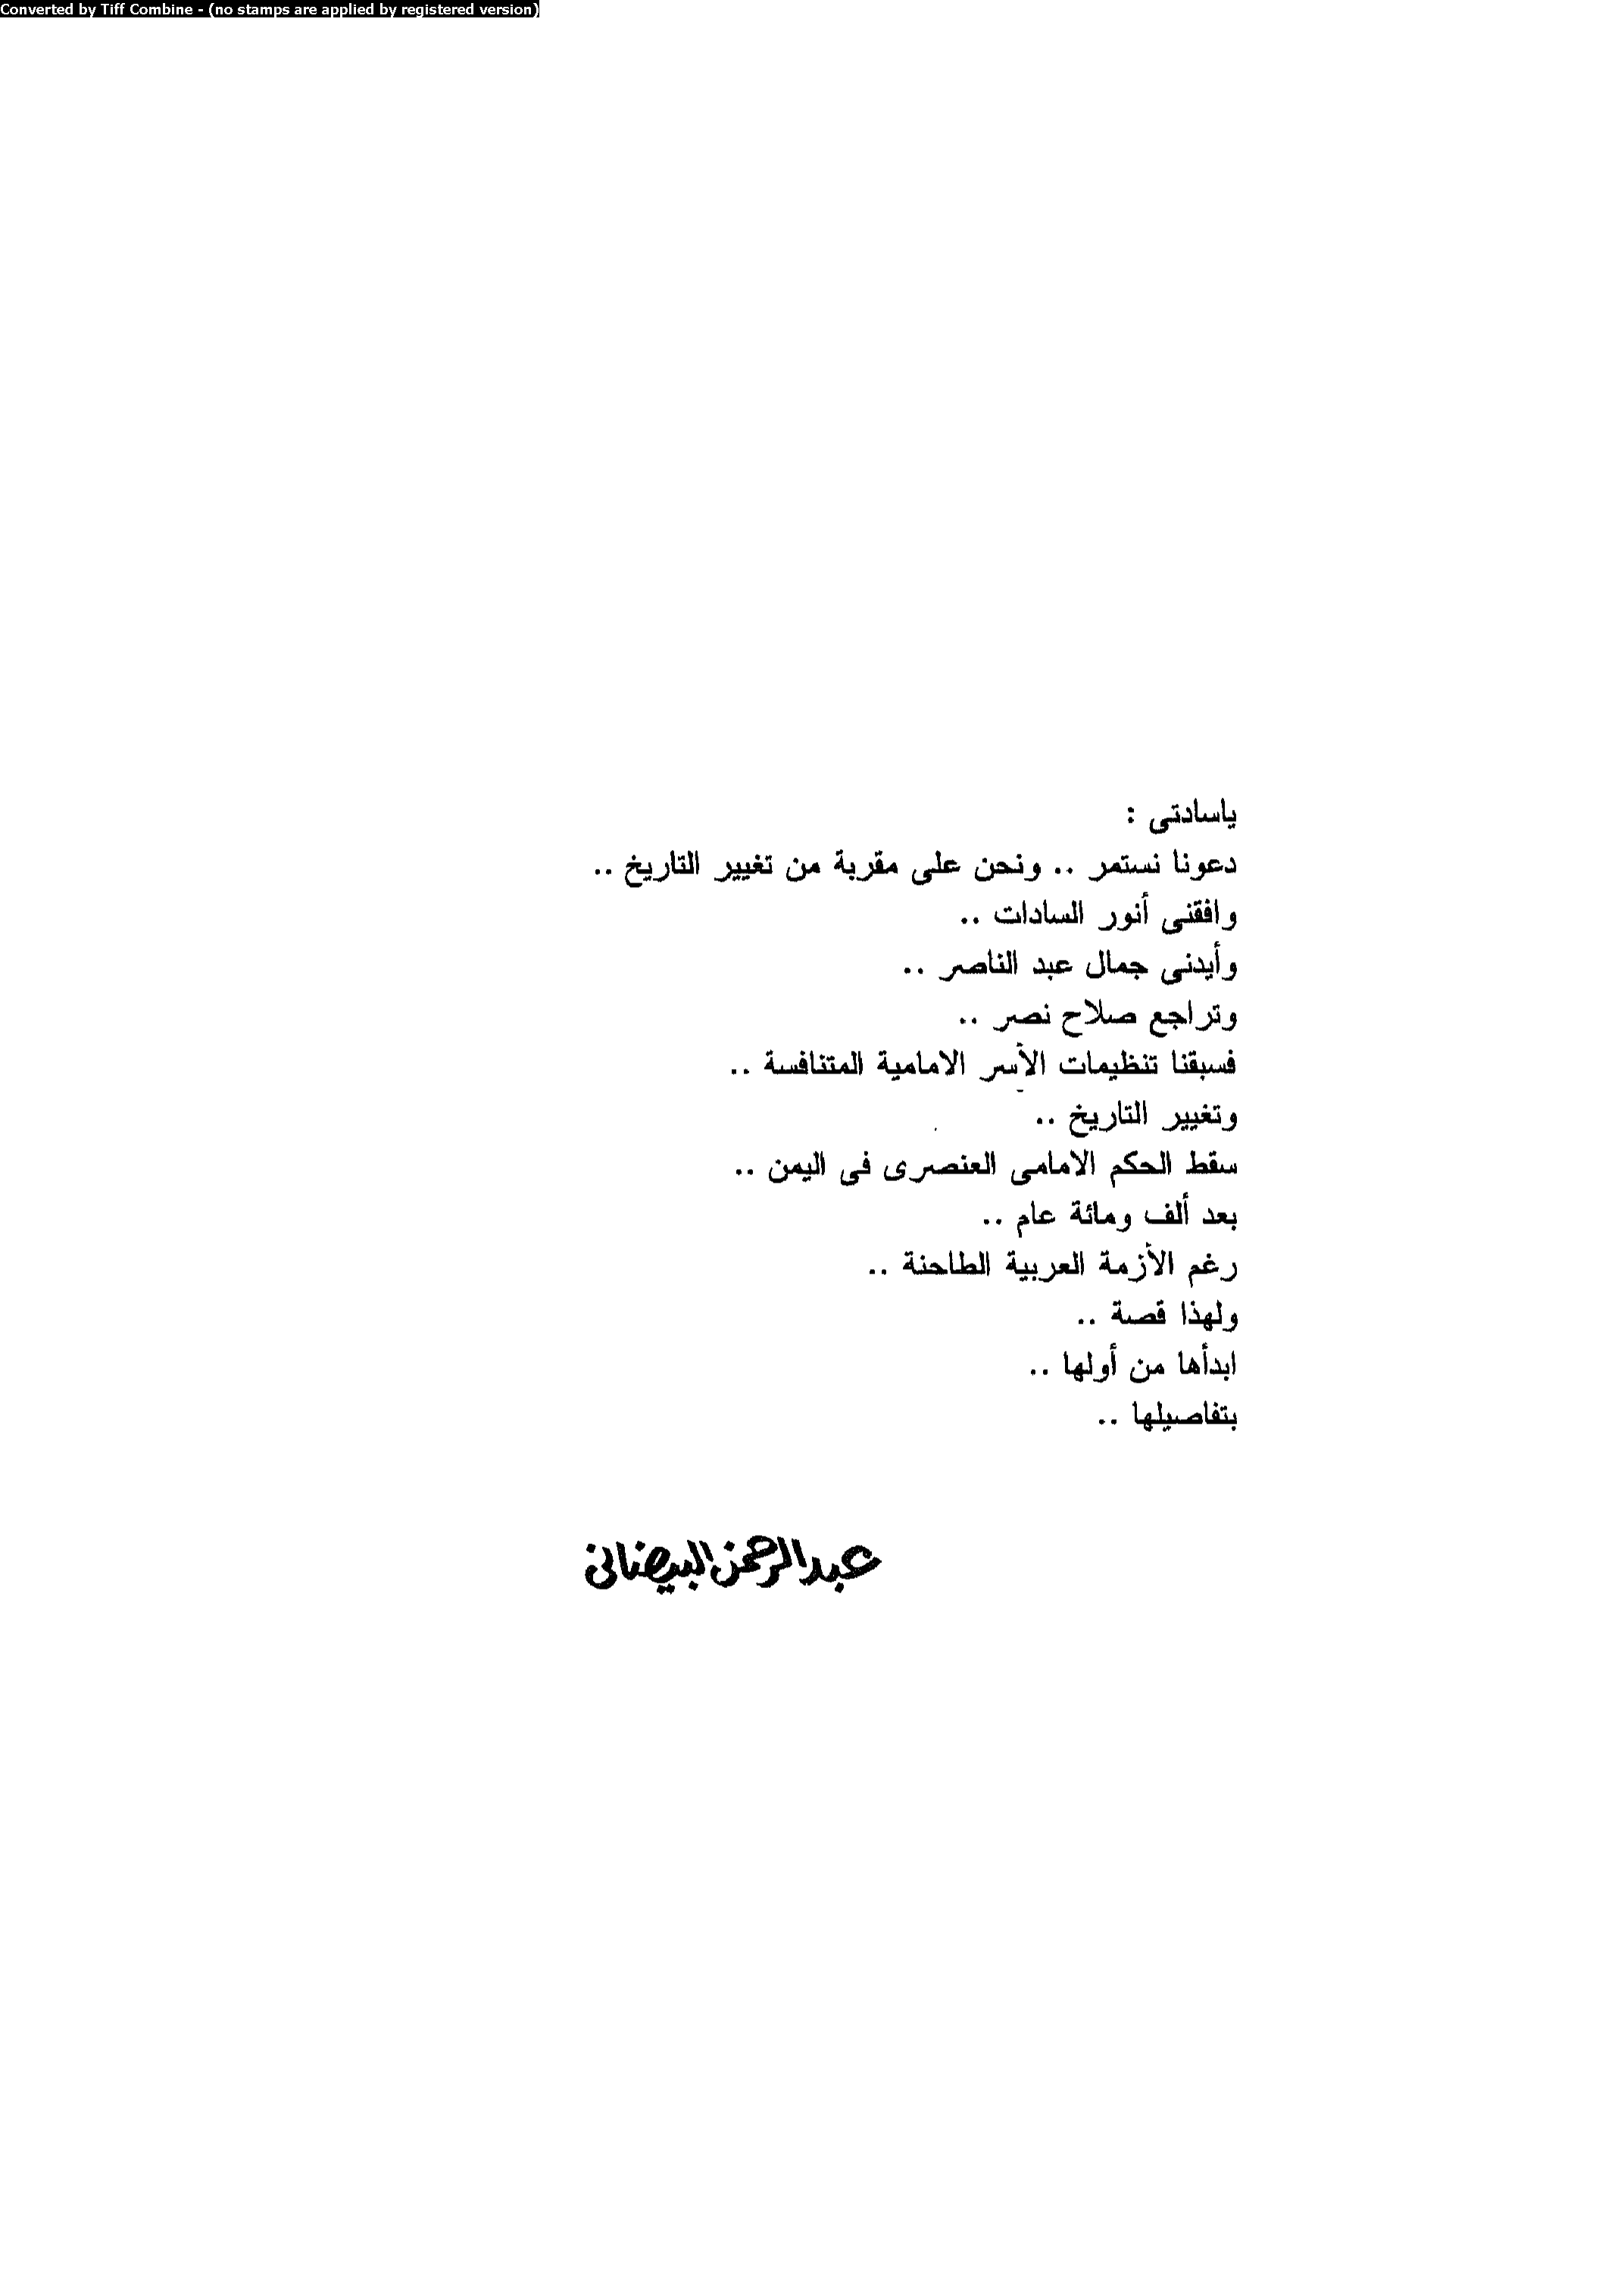 Converted by Tiff Combine - (no stamps are applied by registered version)
ياسادتى :
دعونا نستمر .. ونحن على مقربة من تغيير التاريخ ..
وافقنى أنور السادات ..
وأيدنى جمال عبد الناصر ..
وتراجع صلاح نصر ..
فسبقنا تنظيمات الأسر الامامية المتنافسة ..
وتغيير التاريخ ..
سقط الحكم الامامى العنصرى فى اليمن ..
بعد ألف ومائة عام ..
رغم الأزمة العربية الطاحنة ..
ولهذا قصة ..
ابدأها من أولها ..
بتفاصيلها ..
عبدالرحمن البيضانى